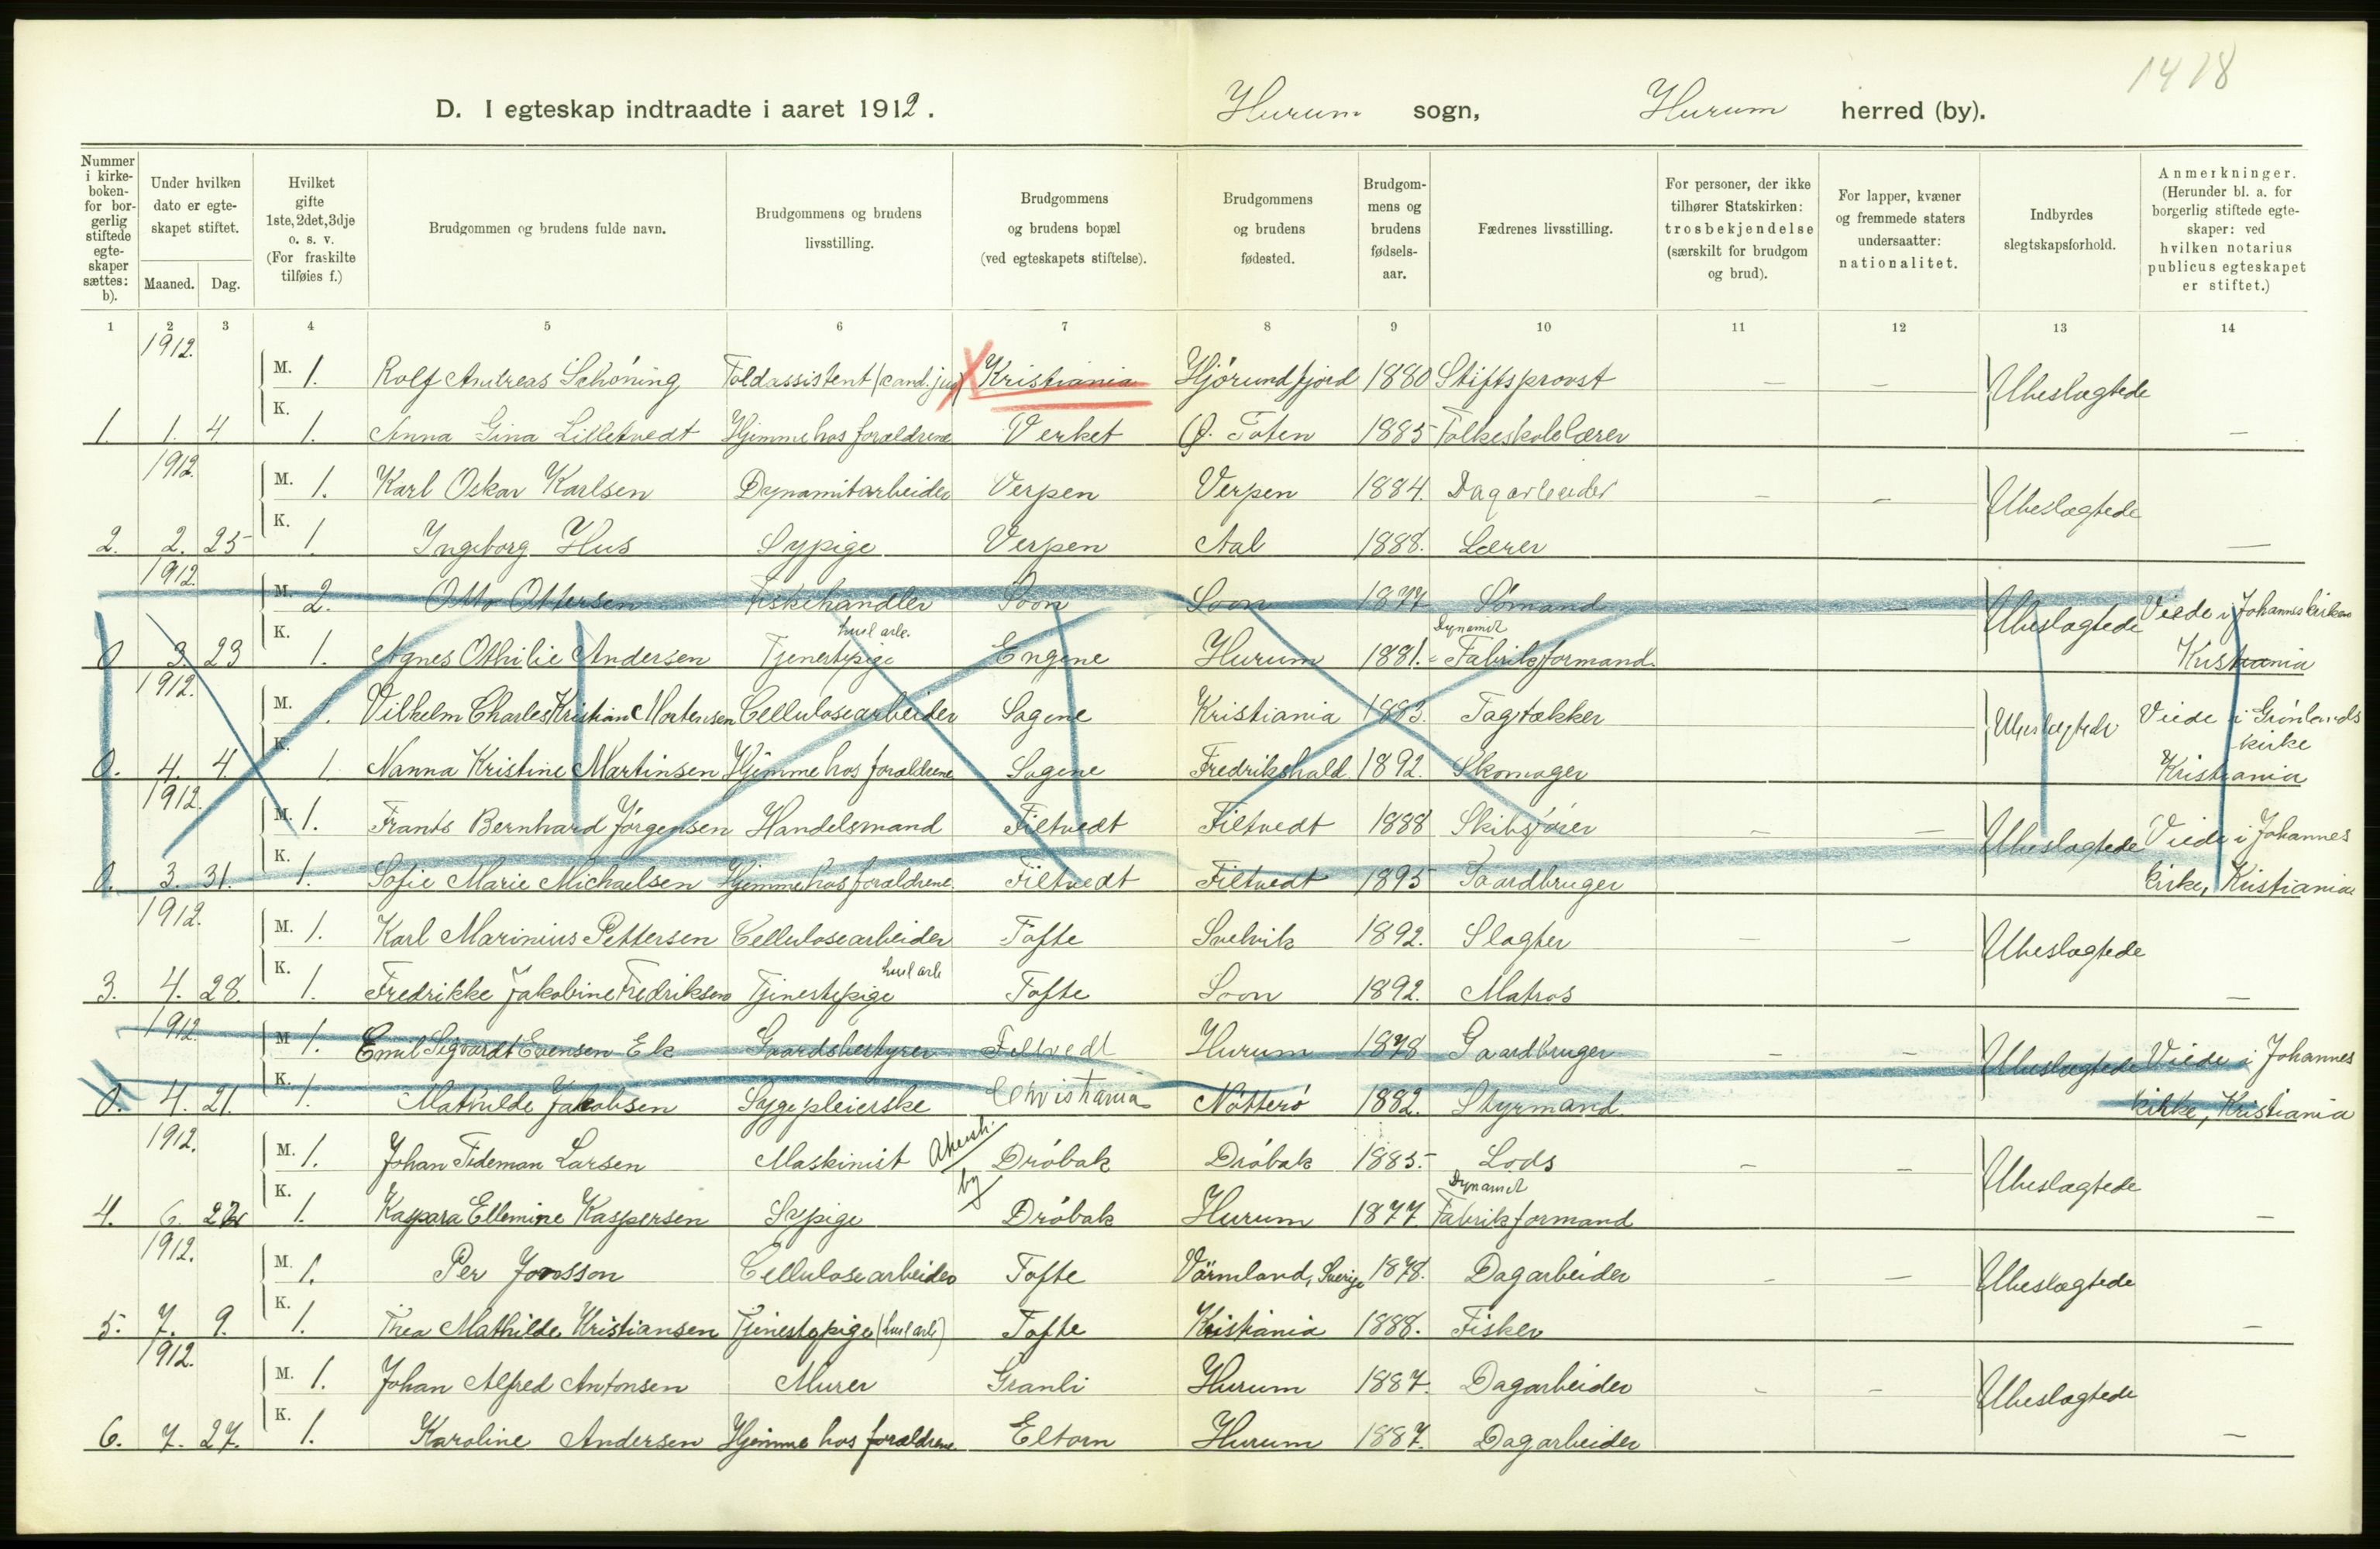 1418
D. I egteskap indtraadte i aaret 1912. Hurum sogn, Hurum herred (by).
Nummer i kirkeboken- for borgerlig stiftede egteskaper sættes: b).
Under hvilken dato er egteskapet stiftet.
Maaned. Dag.
Hvilket gifte 1ste, 2det, 3dje o. s. v. (For fraskilte tilføies f.)
Brudgommen og brudens fulde navn.
Brudgommens og brudens livsstilling.
Brudgommens og brudens bopæl (ved egteskapets stiftelse).
Brudgommens og brudens fødested.
Brudgommens og brudens fødselsaar.
Fædrenes livsstilling.
For personer, der ikke tilhører Statskirken: trosbekjendelse (særskilt for brudgom og brud).
For lapper, kvæner og fremmede staters undersaatter: nationalitet.
Indbyrdes slegtskapsforhold.
Anmerkninger. (Herunder bl. a. for borgerlig stiftede egteskaper: ved hvilken notarius publicus egteskapet er stiftet.)
1 2 3 4 5 6 7 8 9 10 11 12 13 14
1912.
M. 1. Rolf Andreas Schöning Toldassistent (cand. jur) Kristiania Hjörundfjord 1880 Stiftsprovst — — Ubeslægtede
K.
1. 1. 4 1. Anna Gina Lilletvedt Hjemme hos forældrene Verket Ø. Toten 1885 Folkeskolelærer —
1912.
M. 1. Karl Oskar Karlsen Dynamitarbeider Verpen Verpen 1884. Dagarbeider — — Ubeslægtede
K.
2. 2. 25 1. Ingeborg Hus Sypige Verpen Aal 1888. Lærer —
1912.
M. 2. Otto Ottersen Fiskehandler Soon Soon 1877 Sömand — — Ubeslægtede Viede i Johanneskirken
K. husl arb. Dynamit
0 3. 23 1. Agnes Othilie Andersen Tjenestepige Engene Hurum 1881. Fabrikformand. Kristiania
1912.
M. 1. Vilhelm Charles Kristian Mortensen Cellulosearbeider Sagene Kristiania 1883. Tagtækker Ubeslægtede Viede i Grönlands
K. kirke
0. 4. 4. 1. Nanna Kristine Martinsen Hjemme hos forældrene Sagene Fredrikshald 1892. Skomager Kristiania
1912.
M. 1. Frants Bernhard Jörgensen Handelsmand Filtvedt Filtvedt 1888 Skibsförer — — Ubeslægtede Viede i Johannes
K.
0. 3. 31. 1. Sofie Marie Michaelsen Hjemme hos forældrene. Filtvedt Filtvedt 1895 Gaardbruger kirke, Kristiania
1912.
M. 1. Karl Marinius Pettersen Cellulosearbeider Tofte Svelvik 1892. Slagter — — Ubeslægtede
K. husl arb
3. 4. 28. 1. Fredrikke Jakobine Fredriksen Tjenestepige Tofte Soon 1892. Matros —
1912.
M 1. Emil Sigvardt Evensen Ek Gaardsbestyrer Filtvedt Hurum 1878 Gaardbruger — — Ubeslægtede Viede i Johannes
K.
0. 4. 21. 1. Mathilde Jakobsen Sygepleierske Christiania Nötterö 1882. Styrmand. kirke, Kristiania
1912.
M. 1. Johan Tideman Larsen Maskinist Akersh. Dröbak Dröbak 1885. Lods — — Ubeslægtede
K. by Dynamit
4. 6. 1. Kaspara Ellemine Kaspersen Sypige Dröbak Hurum 1877 Fabrikformand —
1912.
M. 1. Per Jonsson Cellulosearbeider Tofte Värmland, Sverige 1878. Dagarbeider — — Ubeslægtede
K.
5. 7. 9. 1. Thea Mathilde Kristiansen Tjenestepige (husl arb) Tofte Kristiania 1888. Fisker —
1912.
M. 1. Johan Alfred Antonsen Murer Granli Hurum 1887. Dagarbeider — — Ubeslægtede
K.
6. 7. 27. 1. Karoline Andersen Hjemme hos forældrene Eltorn Hurum 1887. Dagarbeider —